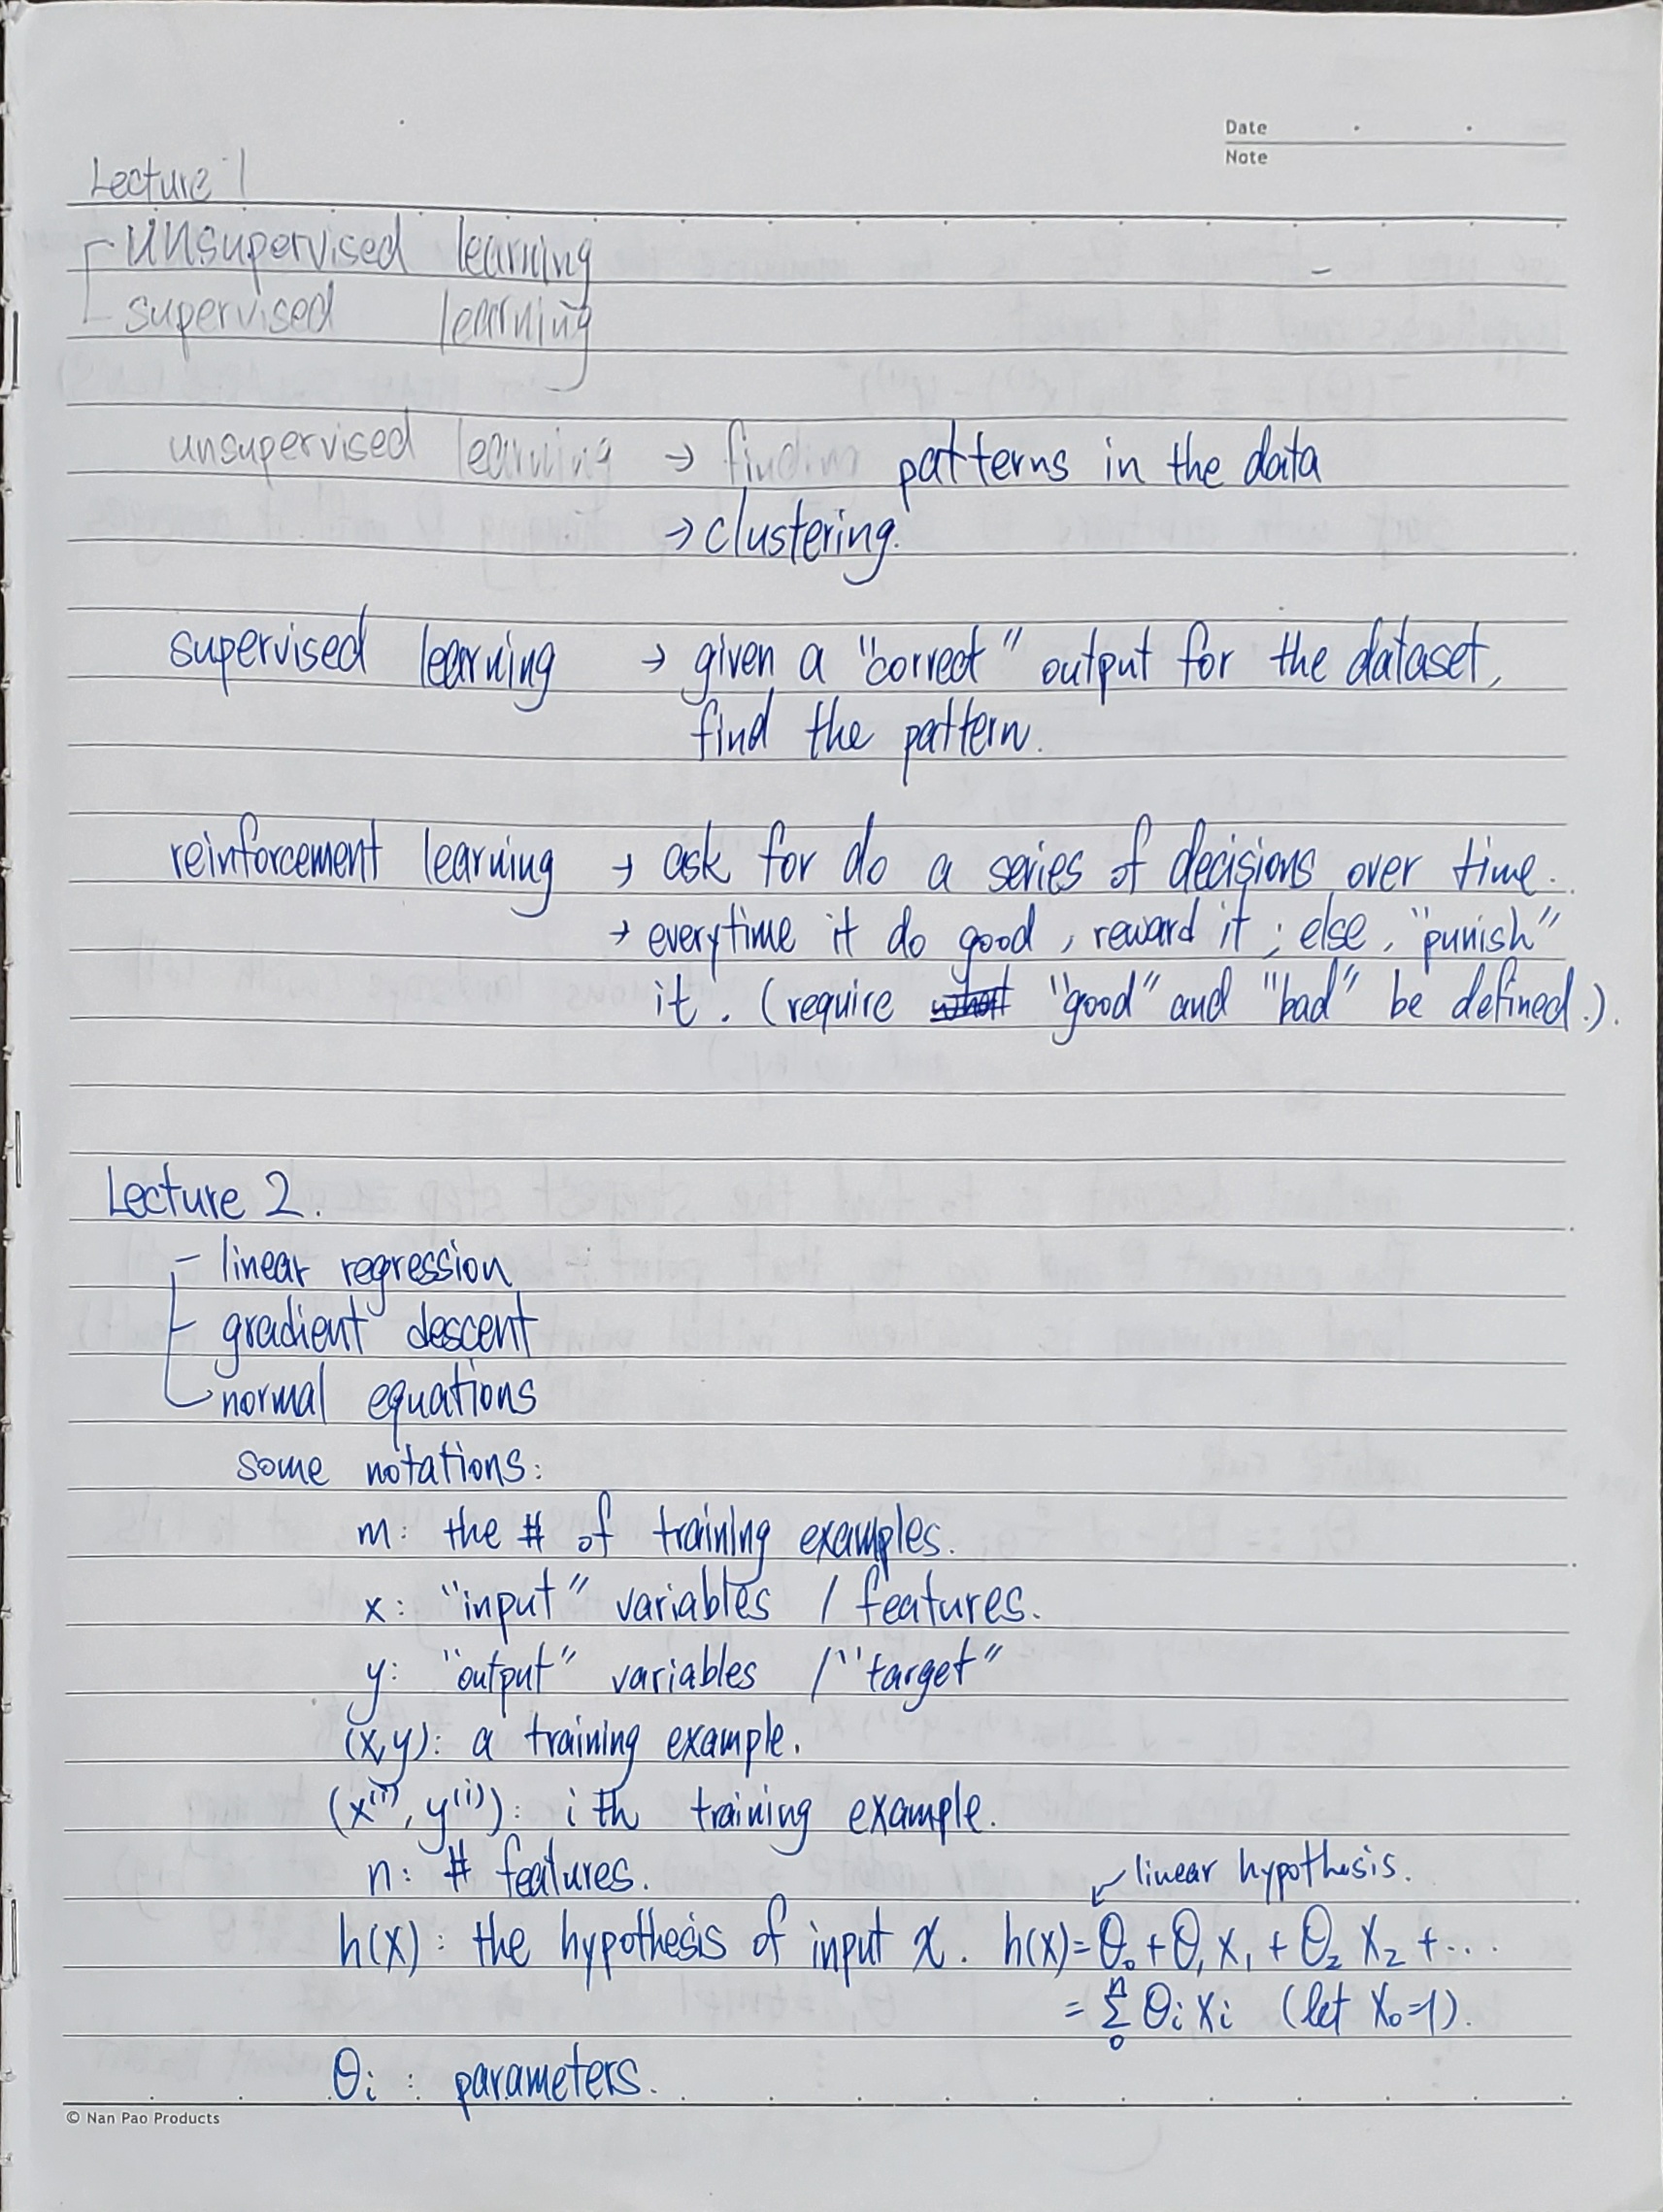 Date
Note
Lecture 1
unsupervised learning
supervised learning
unsupervised learning → finding patterns in the data
→ clustering.
supervised learning → given a "correct" output for the dataset,
find the pattern.
reinforcement learning → ask for do a series of decisions over time.
→ everytime it do good, reward it; else, "punish"
it. (require what "good" and "bad" be defined.).
Lecture 2.
linear regression
gradient descent
normal equations
some notations:
m: the # of training examples.
x: "input" variables / features.
y: "output" variables / "target"
(x,y): a training example.
(x⁽ⁱ⁾, y⁽ⁱ⁾): i th training example.
n: # features.
↙ linear hypothesis.
h(x): the hypothesis of input x. h(x)=θ₀+θ₁x₁+θ₂x₂+...
= Σ₀ⁿ θᵢxᵢ (let x₀=1).
θᵢ: parameters.
© Nan Pao Products